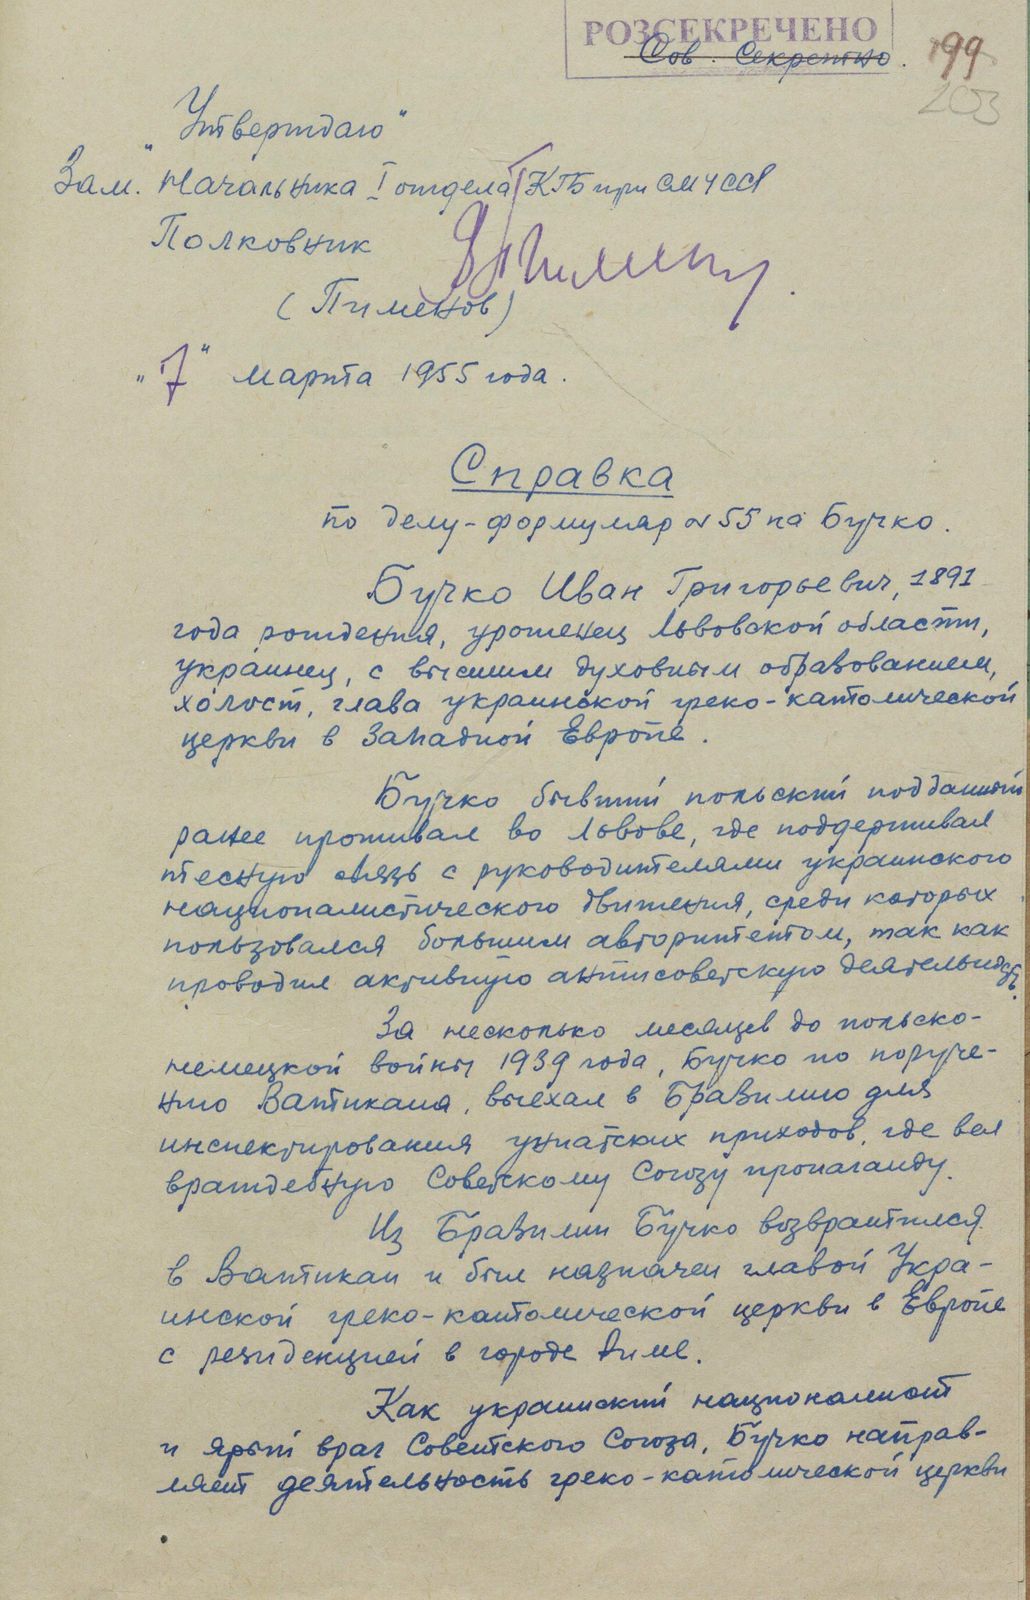 РОЗСЕКРЕЧЕНО
Сов. Секретно.
199
203
"Утверждаю"
Зам. Начальника I отдела КГБ при СМ УССР
Полковник
(Пименов)
"7" марта 1955 года.
Справка
по делу-формуляр № 55 на Бучко.
Бучко Иван Григорьевич, 1891
года рождения, уроженец Львовской области,
украинец, с высшим духовным образованием,
холост, глава украинской греко-католической
церкви в Западной Европе.
Бучко бывший польский подданный
ранее проживал во Львове, где поддерживал
тесную связь с руководителями украинского
националистического движения, среди которых
пользовался большим авторитетом, так как
проводил активную антисоветскую деятельность.
За несколько месяцев до польско-
немецкой войны 1939 года, Бучко по поруче-
нию Ватикана, выехал в Бразилию для
инспектирования униатских приходов, где вел
враждебную Советскому Союзу пропаганду.
Из Бразилии Бучко возвратился
в Ватикан и был назначен главой Укра-
инской греко-католической церкви в Европе
с резиденцией в городе Риме.
Как украинский националист
и ярый враг Советского Союза, Бучко направ-
ляет деятельность греко-католической церкви